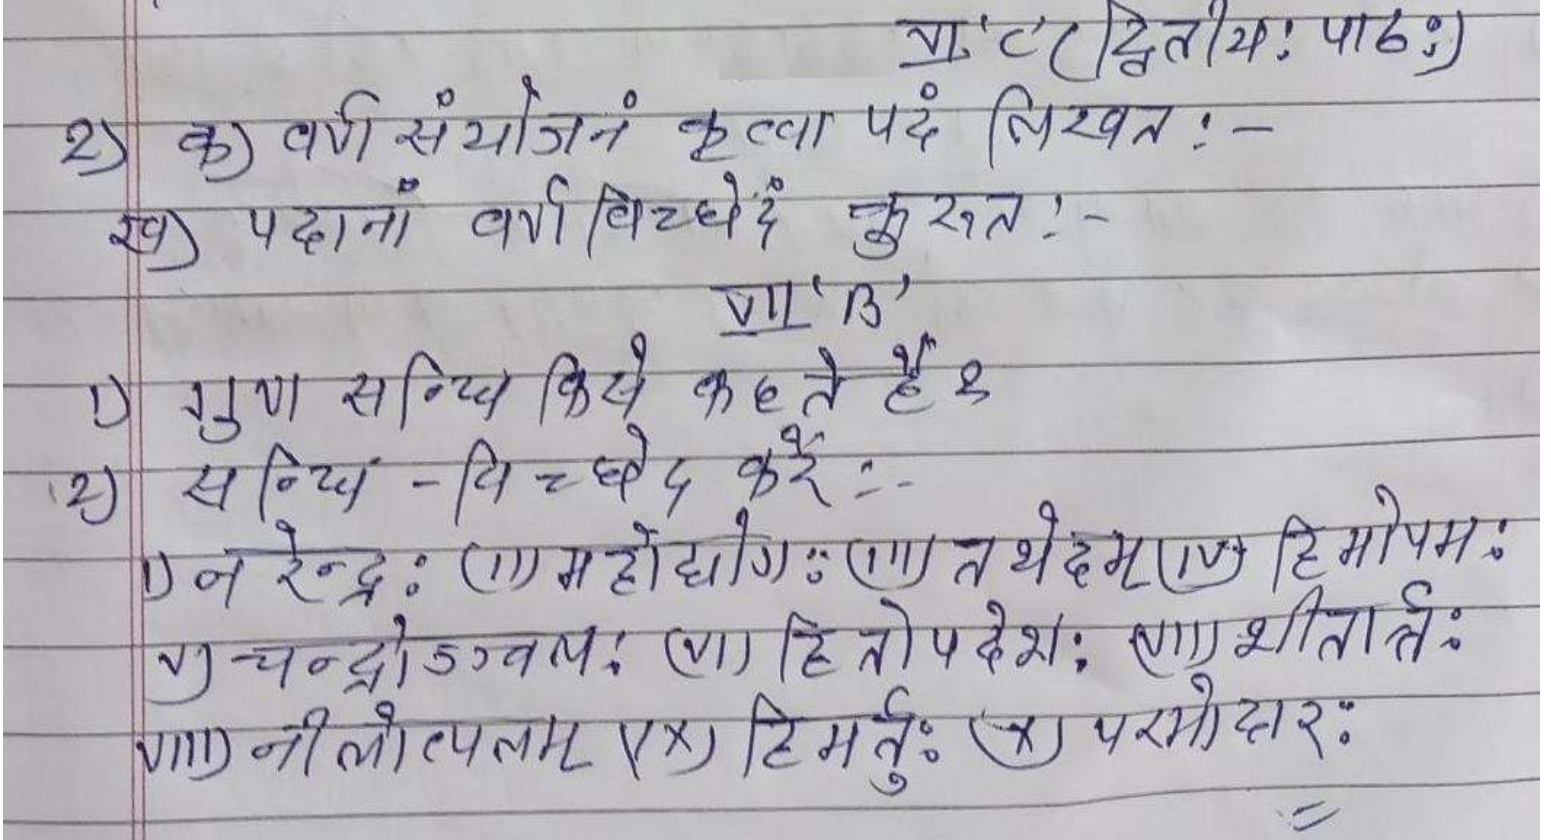 VI 'C' (द्वितीय: पाठ:)
2) क) वर्ण संयोजनं कृत्वा पदं लिखत :-
ख) पदानां वर्ण विच्छेदं कुरुत :-
VII 'B'
1) गुण सन्धि किसे कहते हैं ?
2) सन्धि - विच्छेद करें :-
i) नरेन्द्र: (ii) महोद्योग: (iii) तथेदम् (iv) हिमोपम:
v) चन्द्रोज्ज्वल: (vi) हितोपदेश: (vii) शीतार्त:
viii) नीलोत्पलम् (ix) हिमर्तु: (x) परमोदार: